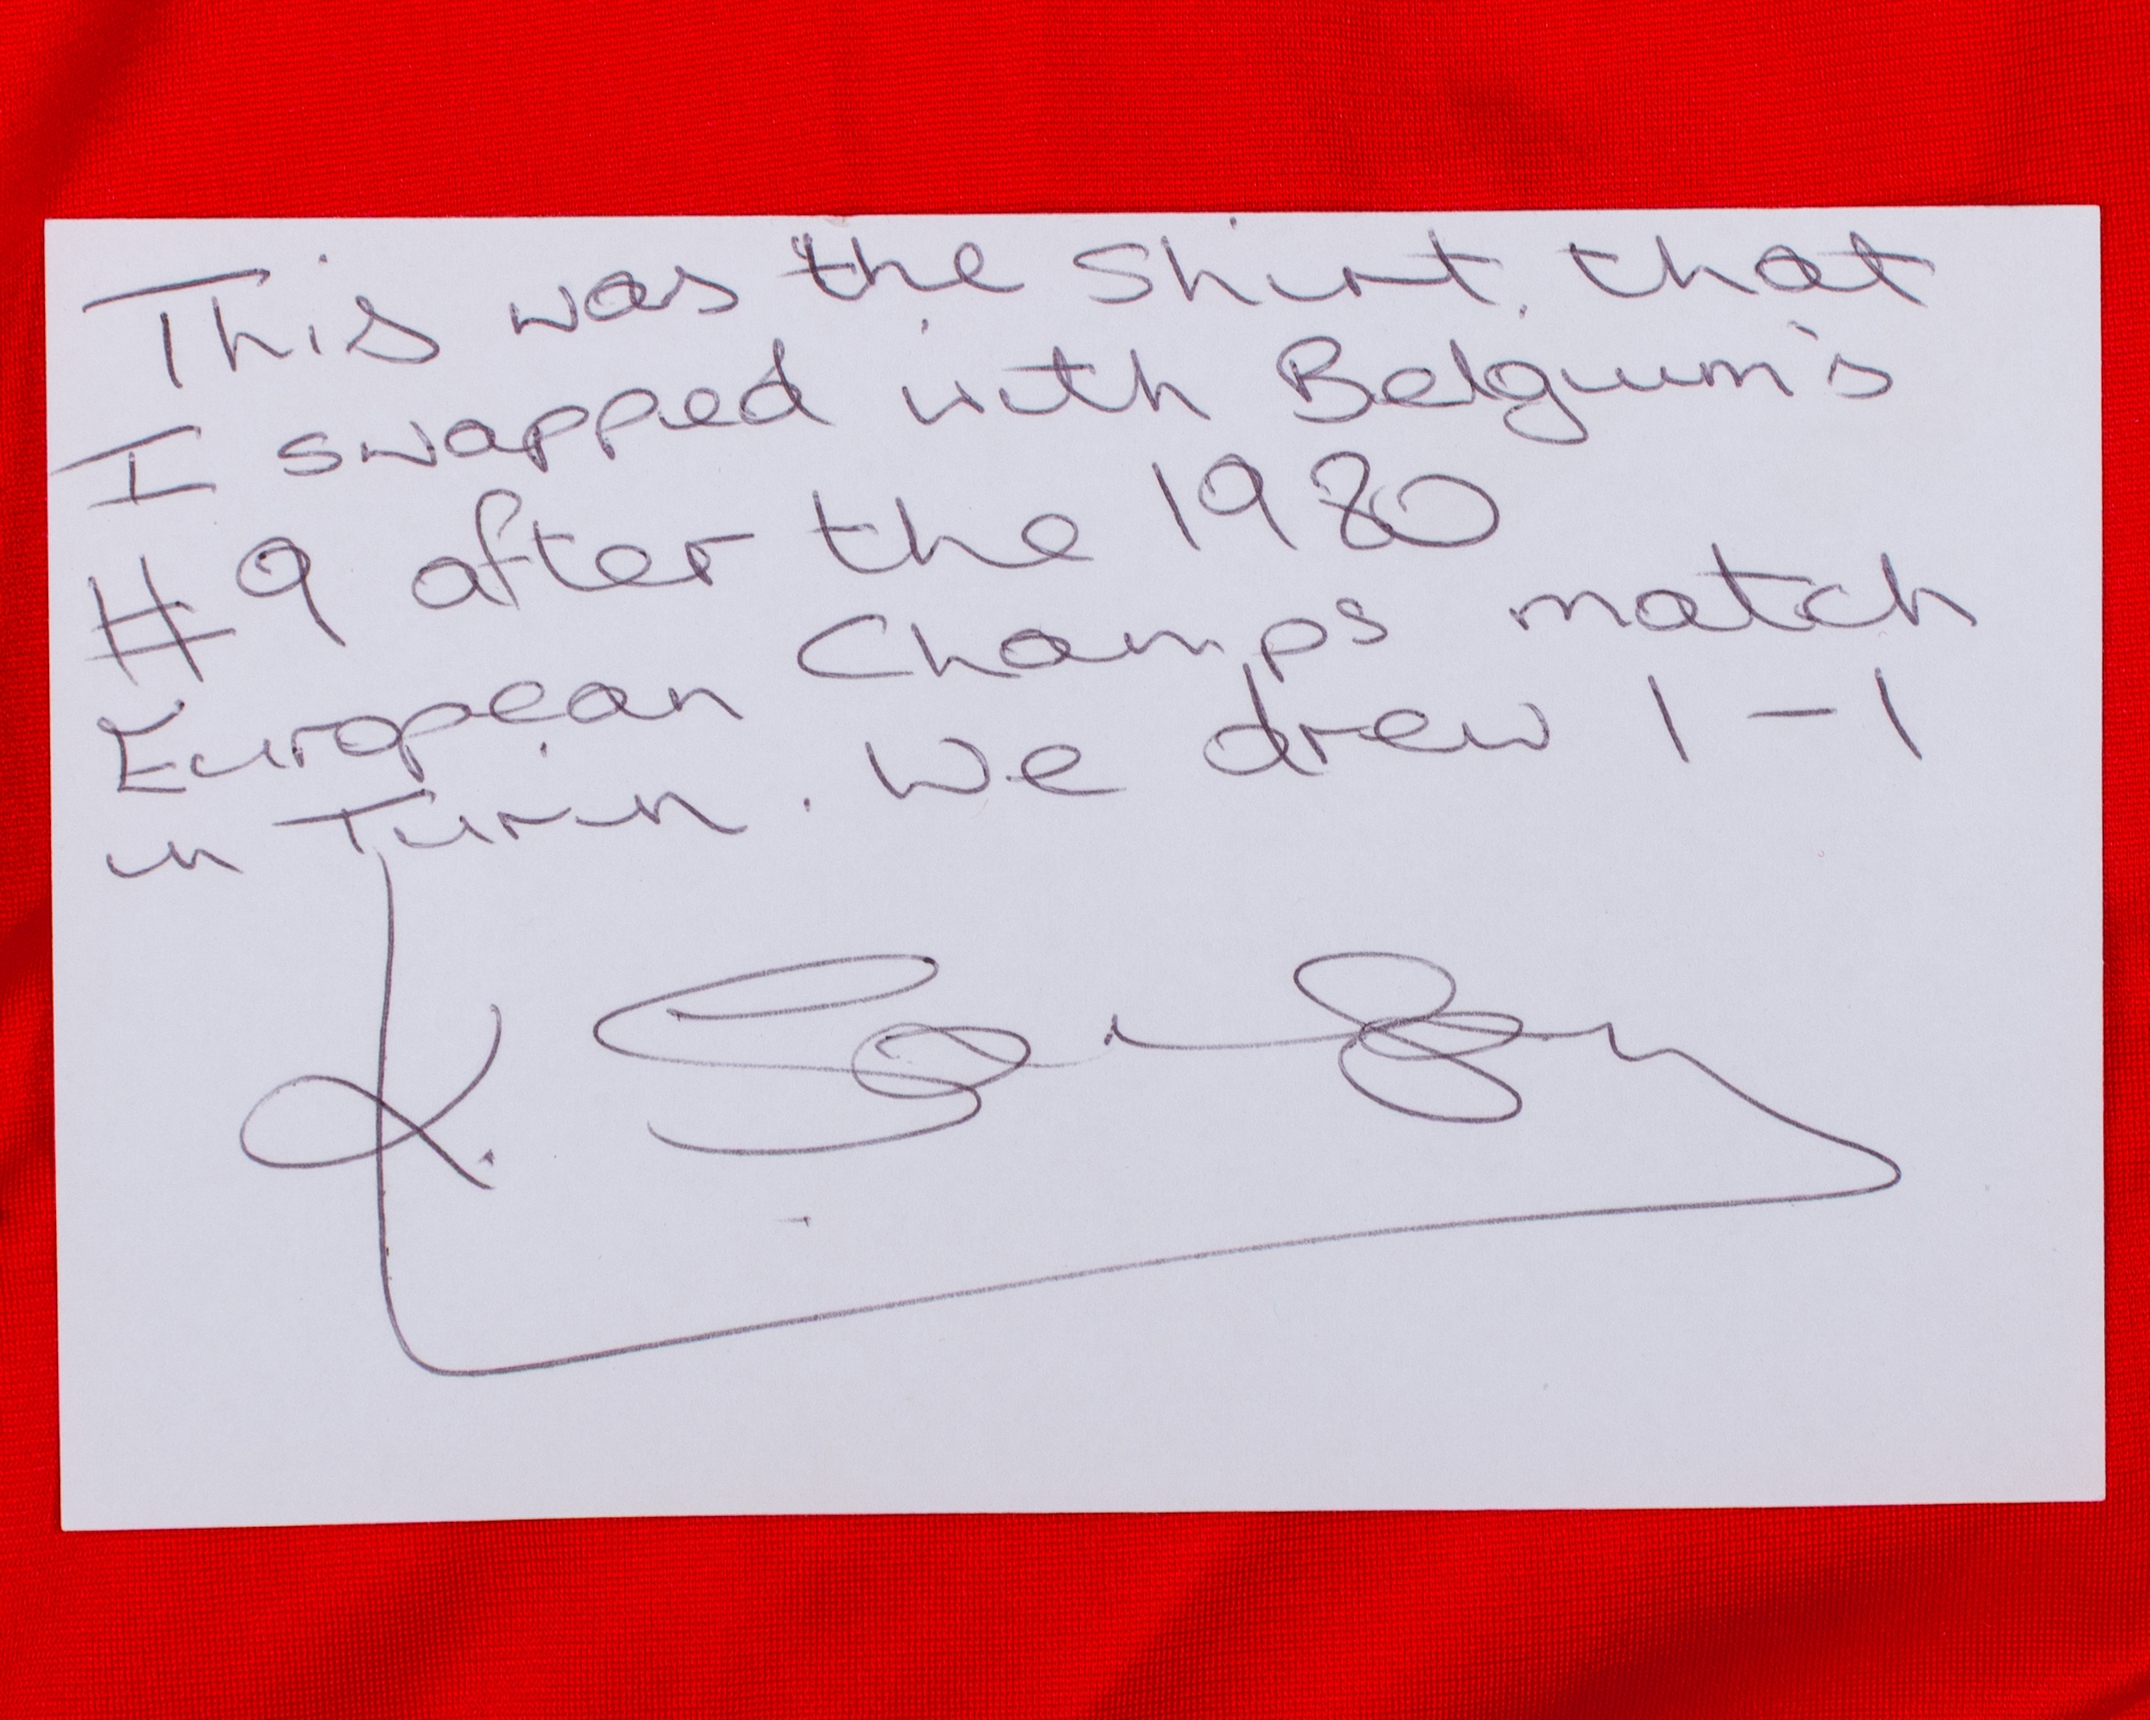 This was the shirt that
I swapped with Belgium's
#9 after the 1980
European Champs match
in Turin. We drew 1-1
K.